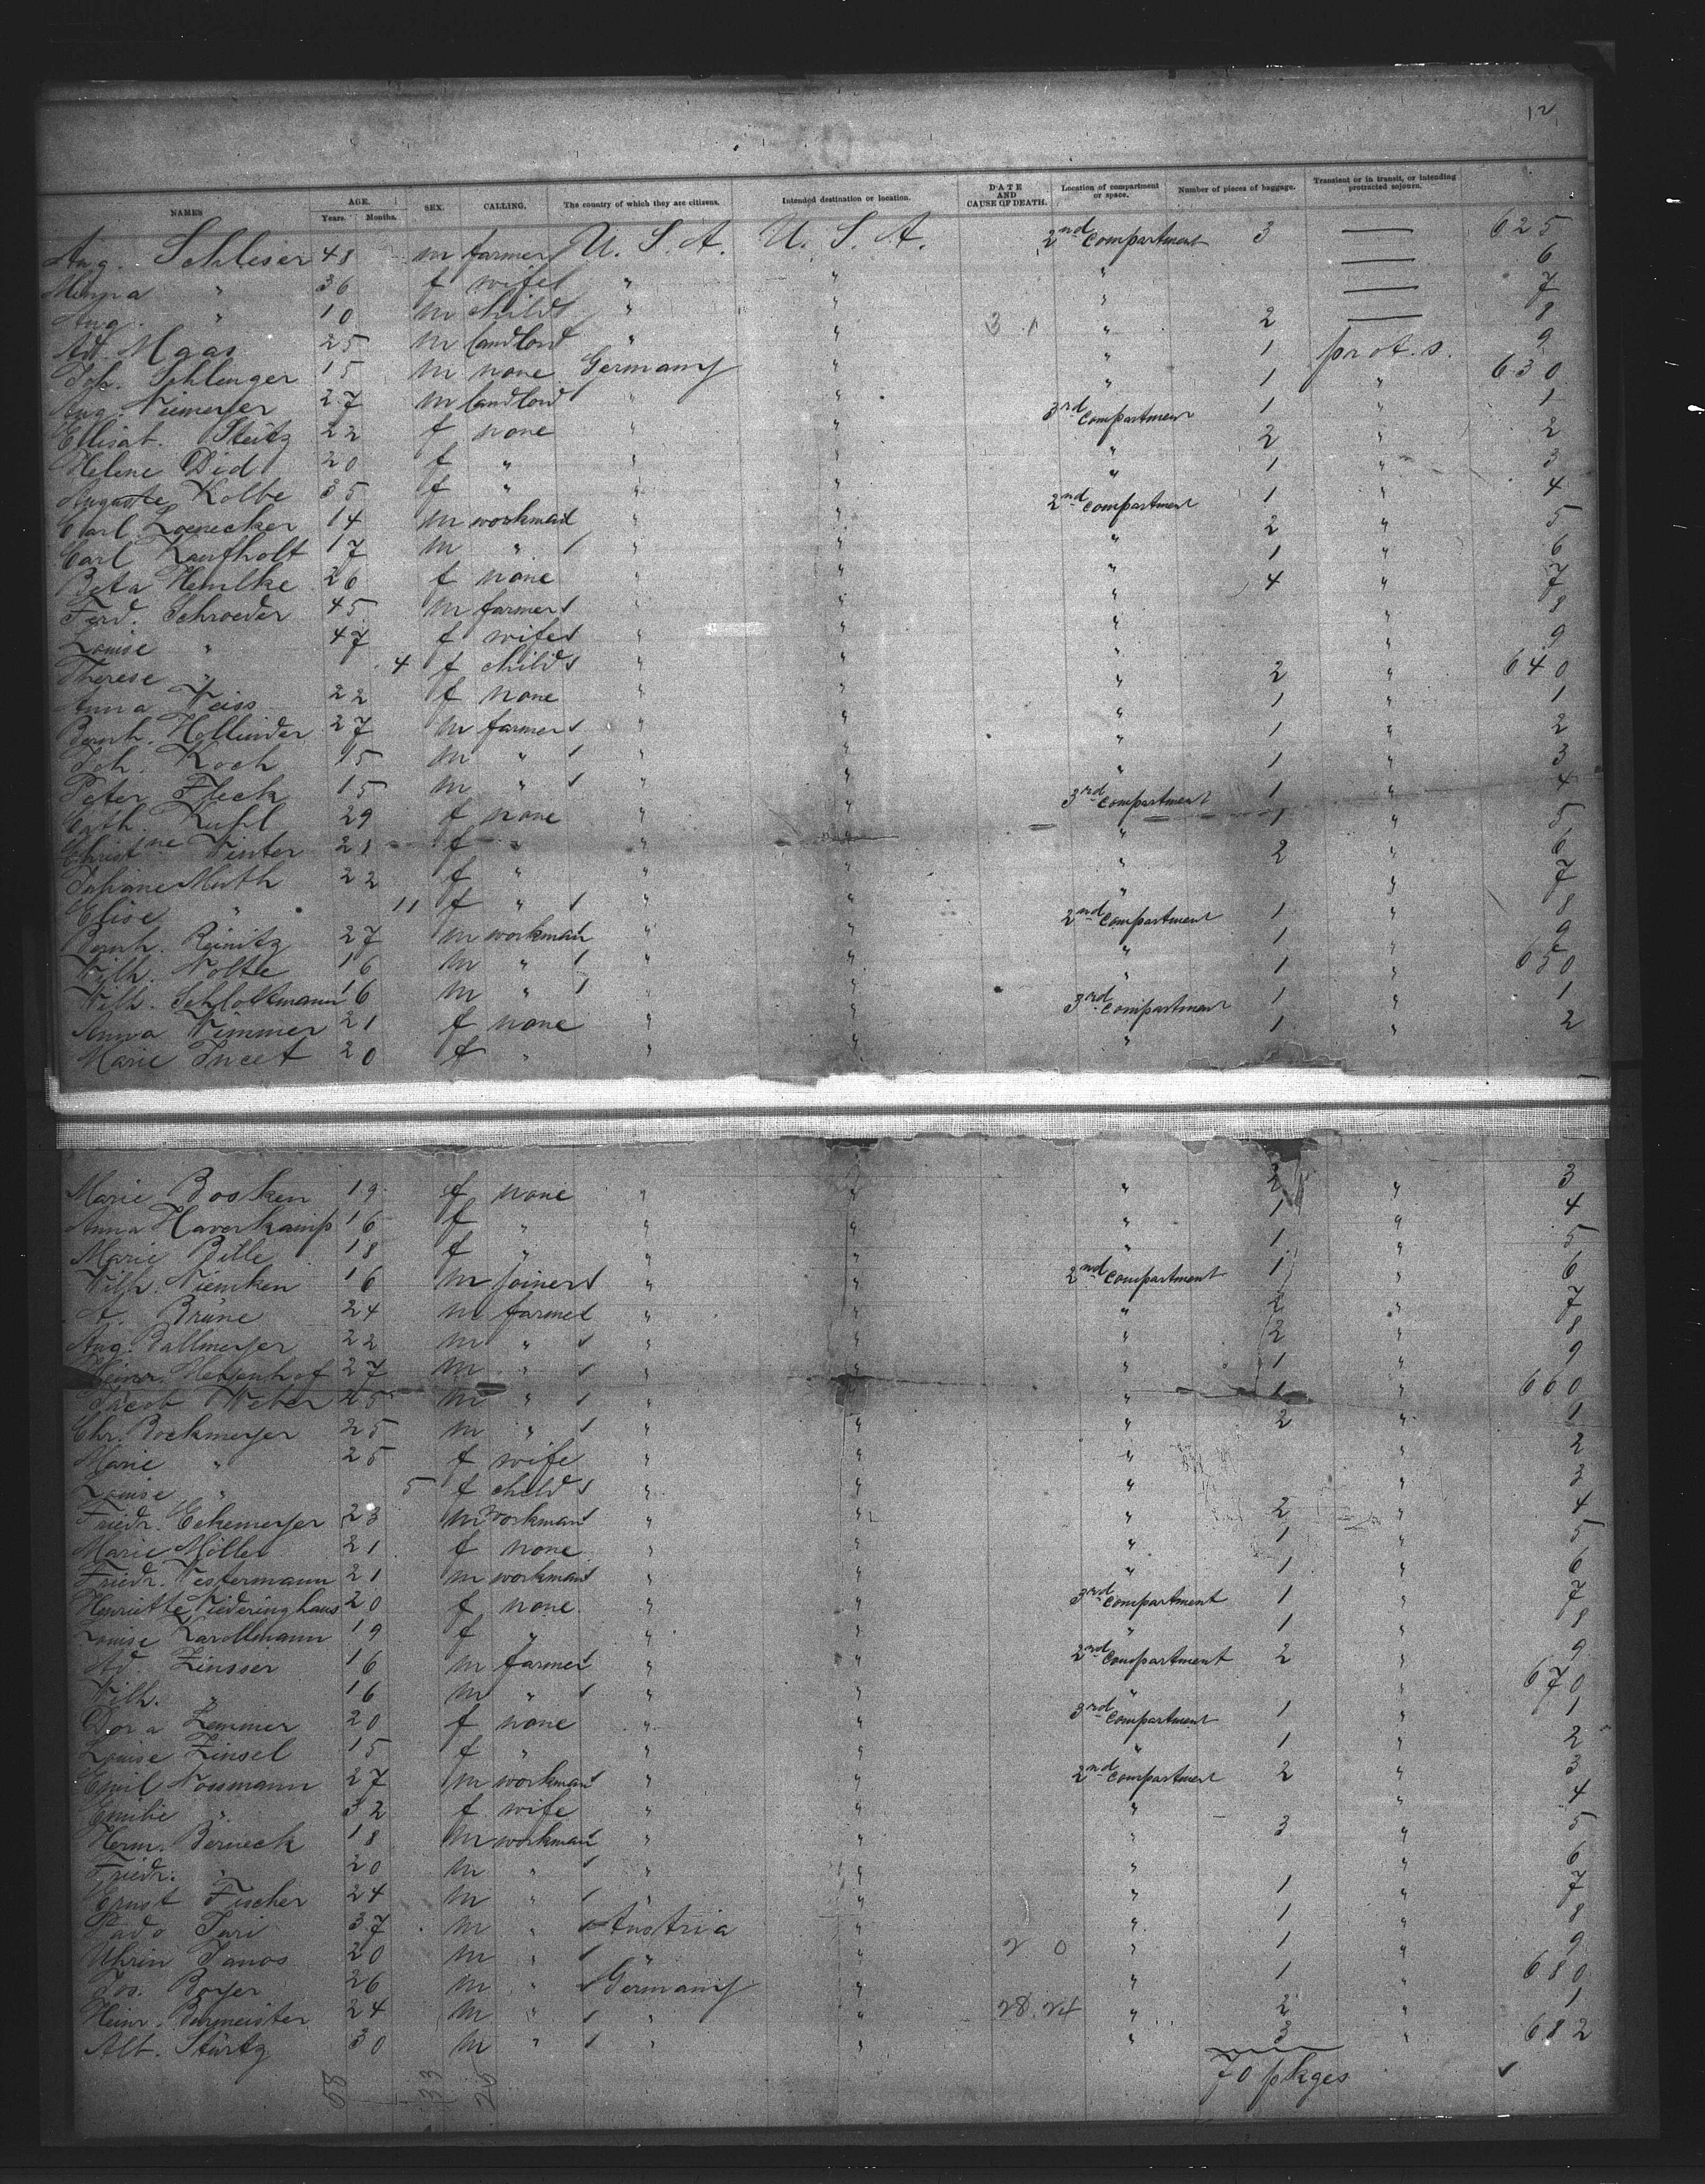 12
NAMES AGE. Years. Months. SEX. CALLING. The country of which they are citizens. Intended destination or location. DATE AND CAUSE OF DEATH. Location of compartment or space. Number of pieces of baggage. Transient or in transit, or intending protracted sojourn.
Aug. Schleser 48 m farmer U. S. A. U. S. A. 2nd Compartment 3 — 625
Minna " 36 f wife " " " — 6
Aug. " 10 m child " " " — 7
Ad. Maas 25 m landlord " " " 2 — 8
Joh. Schlenger 15 m none Germany " " 1 prot. s. 9
Aug. Niemeyer 27 m landlord " " " 1 " 630
Elisab. Steitz 22 f none " " 3rd Compartment 1 " 1
Helene Died 20 f " " " " 2 " 2
Auguste Kolbe 35 f " " " " 1 " 3
Carl Loenecker 14 m workman " " 2nd Compartment 1 " 4
Carl Kaufholt 17 m " " " " 2 " 5
Beta Hemlke 26 f none " " " 1 " 6
Ferd. Schroeder 45 m farmer " " " 4 " 7
Louise " 47 f wife " " " " 8
Therese " 4 f child " " " " 9
Anna Weiss 22 f none " " " 2 " 640
Bernh. Hollinder 27 m farmer " " " 1 " 1
Joh. Koch 15 m " " " " 1 " 2
Peter Fleck 15 m " " " " 1 " 3
Cath. 29 f none " " 3rd Compartment 1 " 4
Christne Winter 21 f " " " " 1 " 5
Muth 22 f " " " " 2 " 6
Elise " 11 f " " " " " 7
Bernh. Reinitz 27 m workman " " 2nd Compartment 1 " 8
Wilh. Nolte 16 m " " " " 1 " 9
Wilh. Schlottmann 16 m " " " " 1 " 650
Anna Wimmer 21 f none " " 3rd Compartment 1 " 1
Marie 20 f " " " " 1 " 2
Marie Bosken 19 f none " " " 2 " 3
Anna Haverkamp 16 f " " " " 1 " 4
Marie Bille 18 f " " " " 1 " 5
Wilh. Niemken 16 m joiner " " 2nd Compartment 1 " 6
A. Brüne 24 m farmer " " " 2 " 7
Aug. Pallmeyer 22 m " " " " 2 " 8
Heinr. 27 m " " " " 1 " 9
Jacob Weber 25 m " " " " 1 " 660
Chr. Bockmeyer 25 m " " " " 2 " 1
Marie " 25 f wife " " " " 2
Louise " 5 f child " " " " 3
Friedr. Eekemeyer 23 m workman " " " 2 " 4
Marie Möller 21 f none " " " 1 " 5
Friedr. Westermann 21 m workman " " " 1 " 6
Henriette Niederinghaus 20 f none " " 3rd Compartment 1 " 7
Louise 19 f " " " " 1 " 8
Ad. Zinsser 16 m farmer " " 2nd Compartment 2 " 9
Wilh. " 16 m " " " " " 670
Dora Zemmer 20 f none " " 3rd Compartment 1 " 1
Louise Zinsel 15 f " " " " 1 " 2
Emil Nossmann 27 m workman " " 2nd Compartment 2 " 3
Emilie " 32 f wife " " " " 4
Herm. Berneck 18 m workman " " " 3 " 5
Friedr. " 20 m " " " " " 6
Ernst Fischer 24 m " " " " 1 " 7
Pado Juri 37 m " Austria " " 1 " 8
Uhrin Janos 20 m " " " 2 0 " 1 " 9
Jos. Boyer 26 m " Germany " " 1 " 680
Heinr. Burmeister 24 m " " " 28 24 " 2 " 1
Alb. Stürtz 30 m " " " " 3 " 682
58 33 25 70 pkges